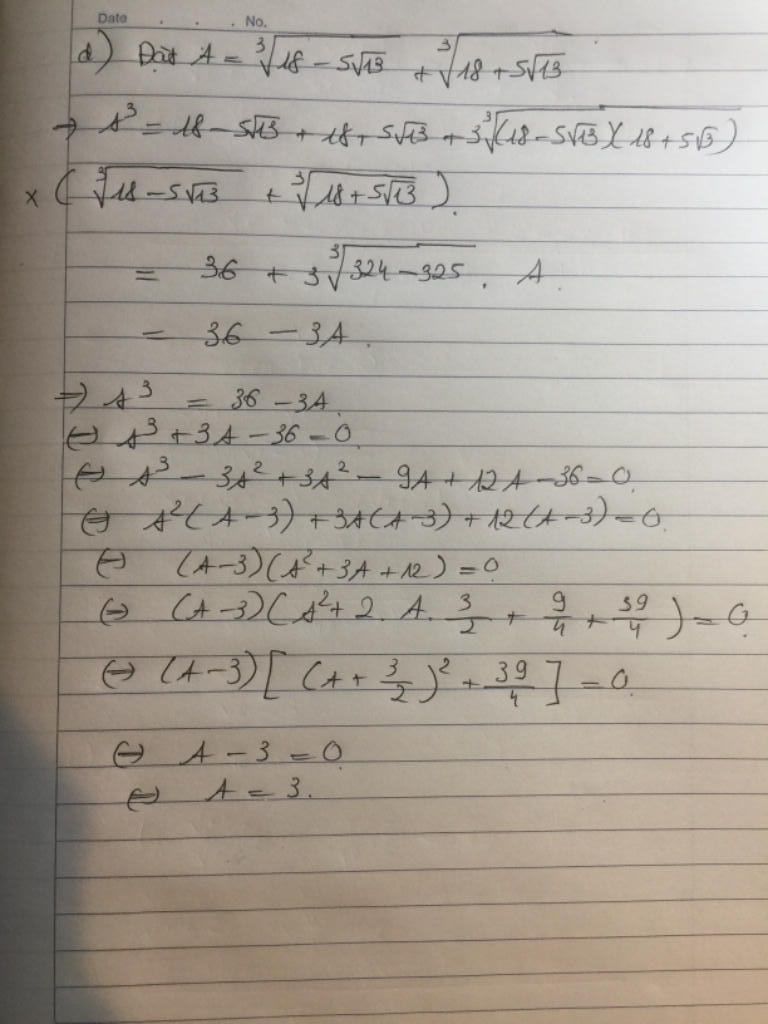 Date . . . No.
d) Đặt A = ∛(18 − 5√13) + ∛(18 + 5√13)
→ A³ = 18 − 5√13 + 18 + 5√13 + 3∛((18 − 5√13)(18 + 5√3))
× (∛(18 − 5√13) + ∛(18 + 5√13)).
= 36 + 3∛(324 − 325) . A.
= 36 − 3A.
⇒ A³ = 36 − 3A.
⇔ A³ + 3A − 36 = 0.
⇔ A³ − 3A² + 3A² − 9A + 12A − 36 = 0.
⇔ A²(A − 3) + 3A(A − 3) + 12(A − 3) = 0.
⇔ (A − 3)(A² + 3A + 12) = 0
⇔ (A − 3)(A² + 2. A. 3/2 + 9/4 + 39/4) = 0.
⇔ (A − 3)[(A + 3/2)² + 39/4] = 0.
⇔ A − 3 = 0.
⇔ A = 3.